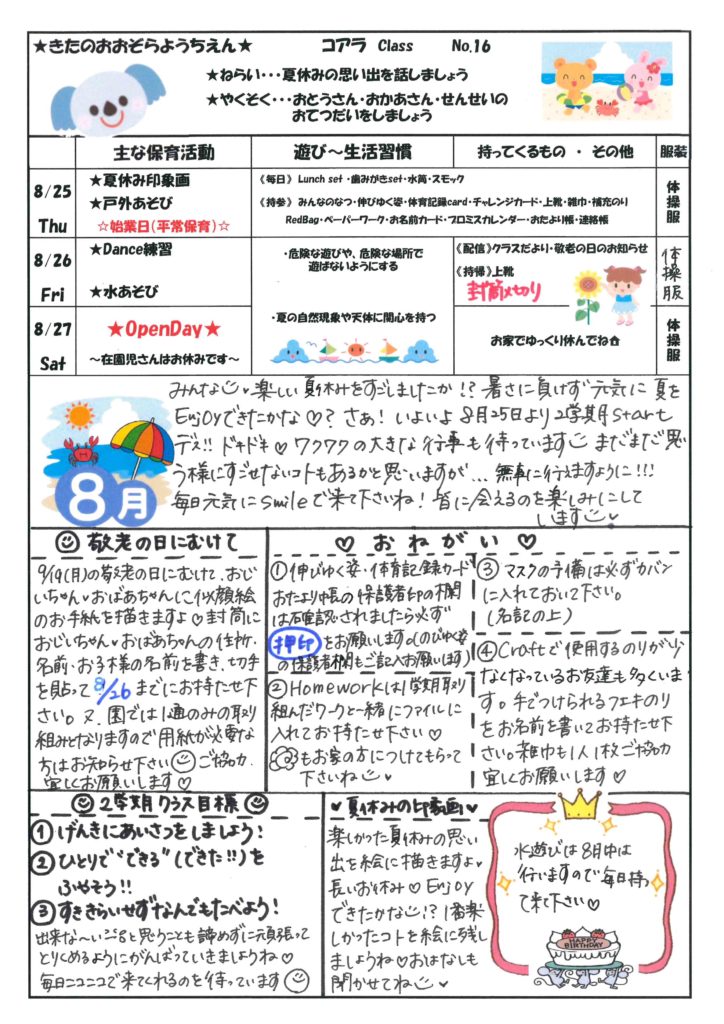 ★きたのおおぞらようちえん★ コアラ Class No.16
★ねらい・・・夏休みの思い出を話しましょう
★やくそく・・・おとうさん・おかあさん・せんせいの
おてつだいをしましょう
主な保育活動 遊び～生活習慣 持ってくるもの ・ その他 服装
8/25 Thu
★夏休み印象画
★戸外あそび
☆始業日(平常保育)☆
《毎日》 Lunch set ・歯みがきset・水筒・スモック
《持参》 みんなのなつ・伸びゆく姿・体育記録card・チャレンジカード・上靴・雑巾・補充のり
RedBag・ペーパーワーク・お名前カード・プロミスカレンダー・おたより帳・連絡帳
体操服
8/26 Fri
★Dance練習
★水あそび
・危険な遊びや、危険な場所で
遊ばないようにする
《配信》クラスだより・敬老の日のお知らせ
《持帰》上靴
封筒〆切り
体操服
8/27 Sat
★OpenDay★
～在園児さんはお休みです～
・夏の自然現象や天体に関心を持つ
お家でゆっくり休んでね
体操服
8月
みんな 楽しい夏休みをすごしましたか!? 暑さに負けず元気に夏を
Enjoyできたかな♡? さぁ! いよいよ8月25日より2学期startも
デス!! ドキドキ♡ワクワクの大きな行事も待っています まだまだ思
う様にすごせないコトもあるかと思いますが… 無事に行えますように!!!
毎日元気にsmileで来て下さいね! 皆に会えるのを楽しみにして
います
敬老の日にむけて
9/19(月)の敬老の日にむけて、おじ
いちゃん・おばあちゃんに似顔絵
のお手紙を描きますよ♡封筒に
おじいちゃん・おばあちゃんの住所・
名前・お子様の名前を書き、切手
を貼って8/26までにお持たせ下
さい。又、園では1通のみの取り
組みとなりますので用紙が必要な
方はお知らせ下さい ご協力
宜しくお願いします♡
♡ おねがい ♡
①伸びゆく姿・体育記録カード
おたより帳の保護者印の欄
は確認されましたら必ず
押印をお願いします。(のびゆく姿
の保護者欄もご記入お願います)
②Homeworkは1学期取り
組んだワークと一緒にファイルに
入れてお持たせ下さい♡
もお家の方につけてもらって
下さいね
③ マスクの予備は必ずカバン
に入れておいて下さい。
(名記の上)
④Craftで使用するのりが少
なくなっているお友達も多くいま
す。手でつけられるフエキのり
をお名前を書いてお持たせ下
さい。雑巾も1人1枚ご協力
宜しくお願いします♡
2学期クラス目標
①げんきにあいさつをしましょう!
②ひとりで“できる”(できた!!)を
ふやそう!!
③すききらいせずなんでもたべよう!
出来な～いと思うことも諦めずに頑張って
とりくめるようにがんばっていきましょうね♡
毎日ニコニコで来てくれるのを待っています
♥夏休みの印象画♥
楽しかった夏休みの思い
出を絵に描きますよ
長いお休み♡Enjoy
できたかな!? 1番楽
しかったコトを絵に残し
ましょうね♡おはなしも
聞かせてね
水遊びは8月中は
行いますので毎日持っ
て来て下さい♡
HAPPY
BIRTHDAY